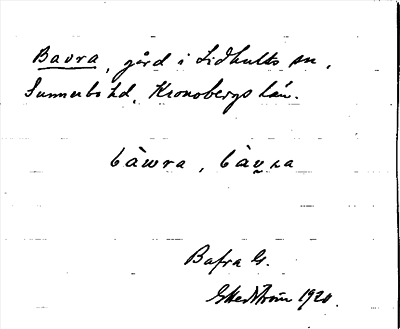 Bavra, gård i Lidhults sn,
Sunnerbo hd, Kronobergs län.
bàwra, bàu̯ra
Bafra G.
Ekedström 1920.